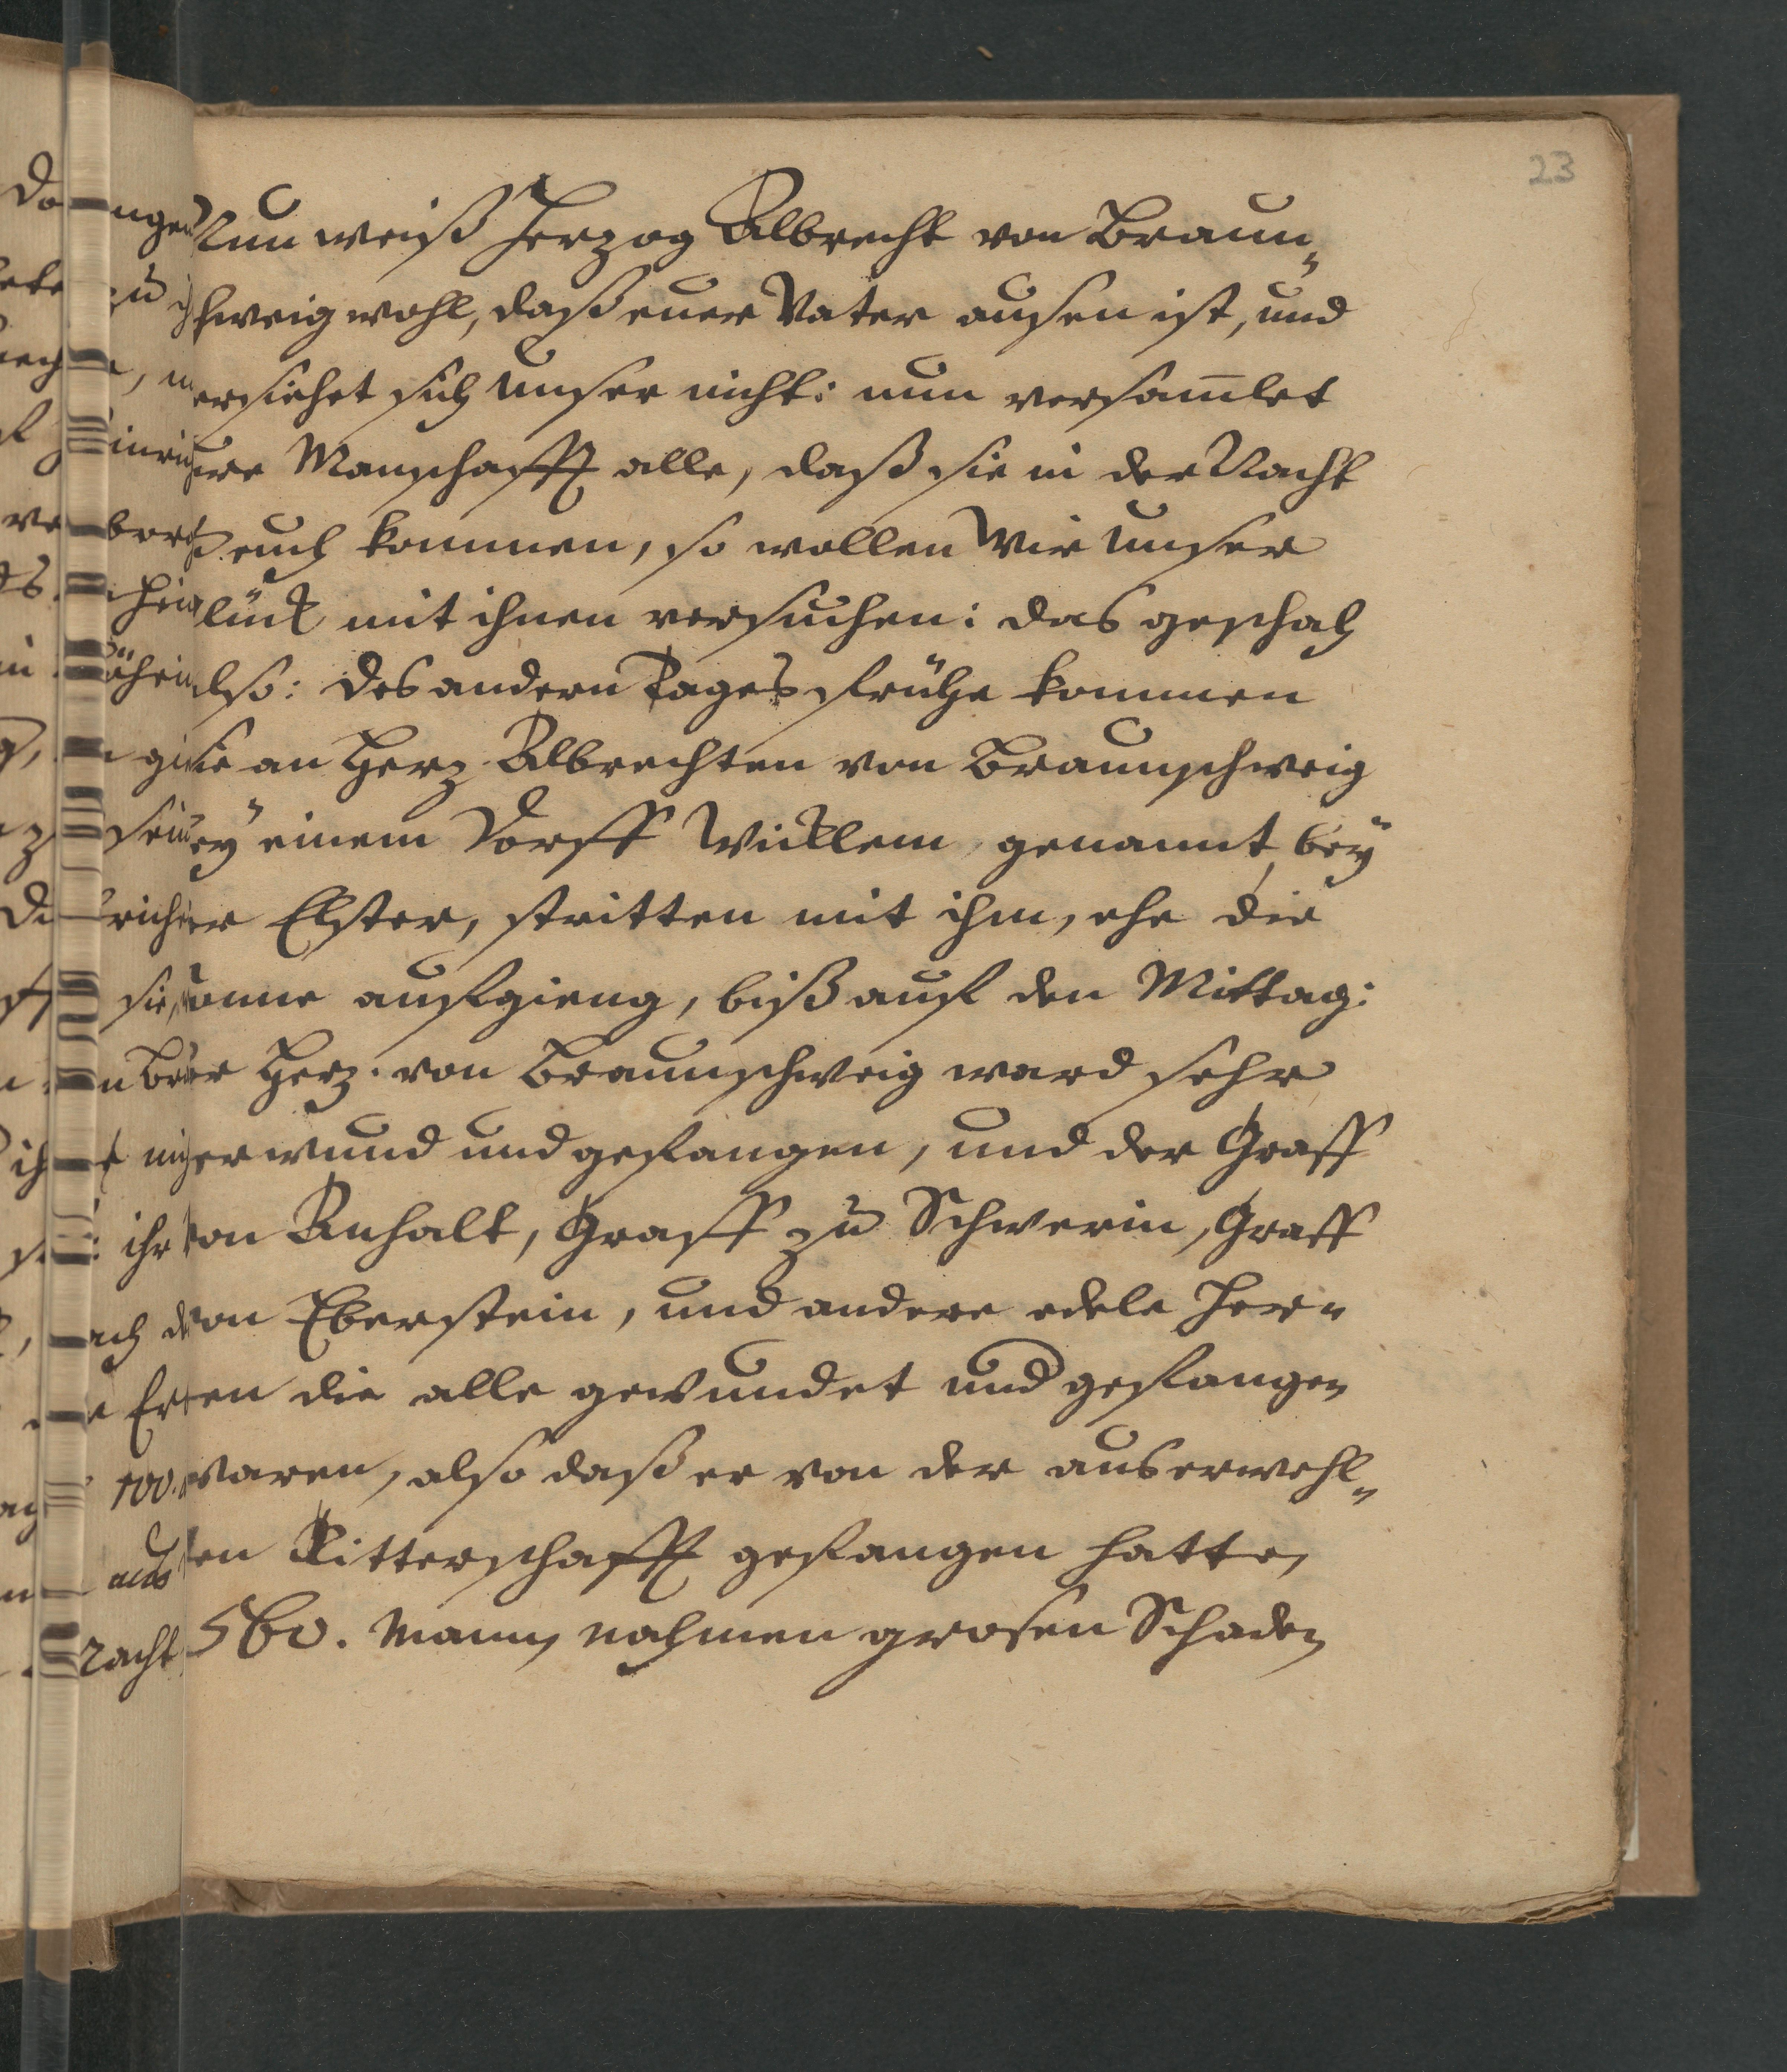 23
Nun weiß Herzog Albrecht von Braun„
schweig wohl, daß euer Vater ausen ist, und
versiehet sich unser nicht: nun versam̅let
eure Manschafft alle, daß sie in der Nacht
euch kommen, so wollen Wir unser
lück mit ihnen versuchen: das geschah
also: des andern Tages frühe kommen
sie an Herz. Albrechten von Braunschweig
bey einem Dorff Wicklem, genannt, bey
der Elster, stritten mit ihm, ehe die
Sonne aufgieng, biß auf den Mittag:
der Herz. von Braunschweig ward sehr
verwund und gefangen, und der Graff
von Anhalt, Graff zu Schwerin, Graff
von Eberstein, und andere edele Her„
ren die alle gewundet und gefangen
waren, also daß er von der auserwehl„
ten Ritterschafft gefangen hatte,
560. Mann, nahmen grosen Schaden